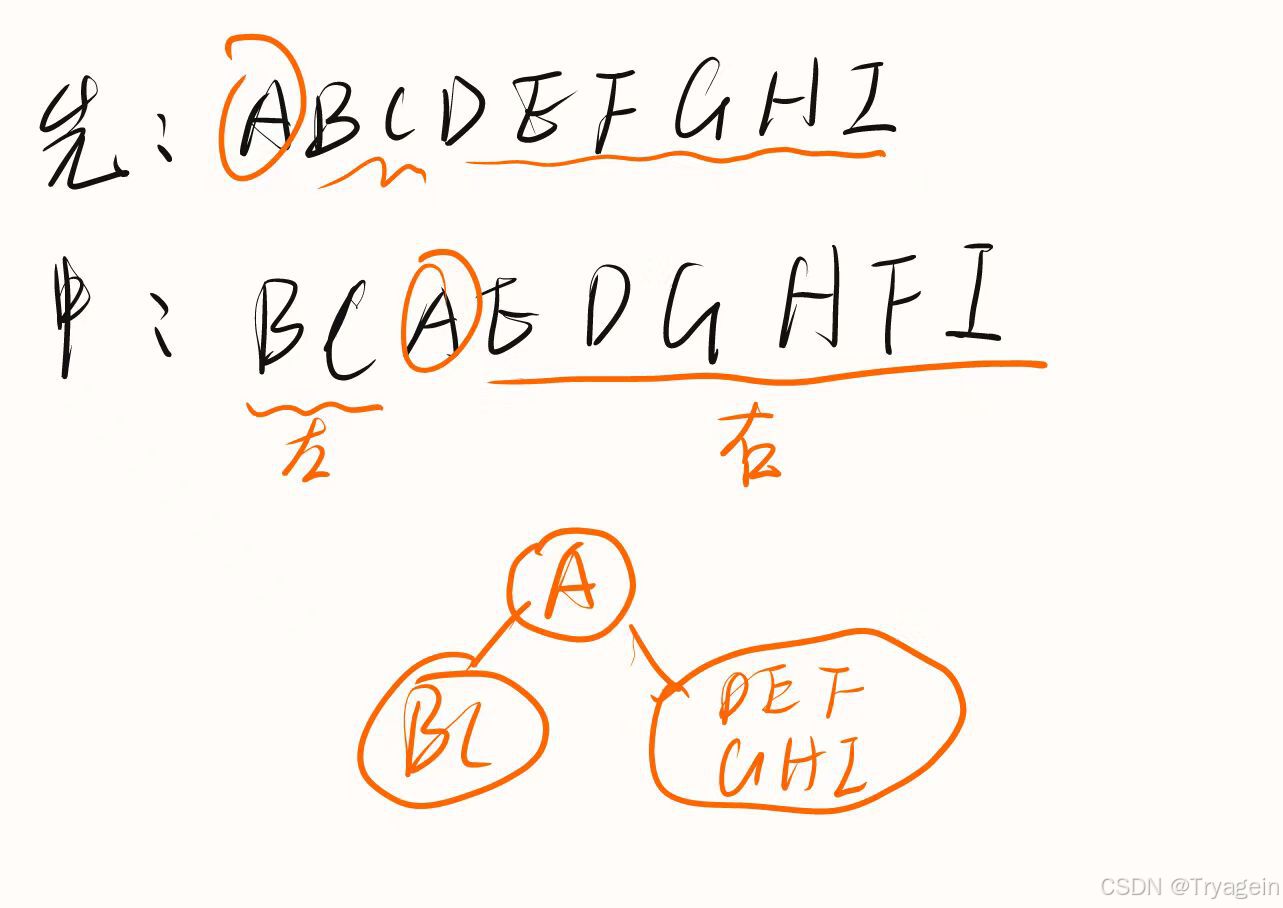 先: ABCDEFGHI
中: BCAEDGHFI
左 右
A
BC DEF
GHI
CSDN @Tryagein